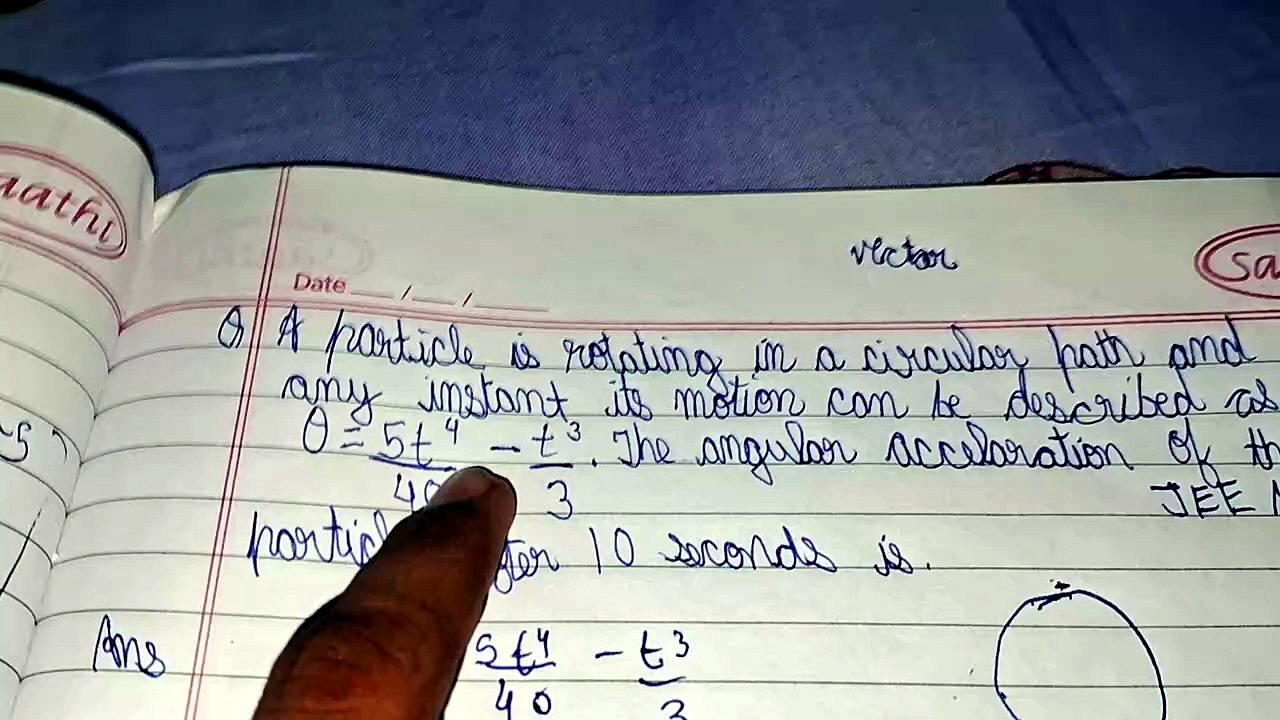 aathi
vector
Sa
Date __/__/____
Q A particle is rotating in a circular path and
any instant its motion can be described as
θ = 5t⁴ - t³. The angular accelaration of th
40 3
JEE
particl fter 10 seconds is.
Ans 5t⁴ - t³
40 3